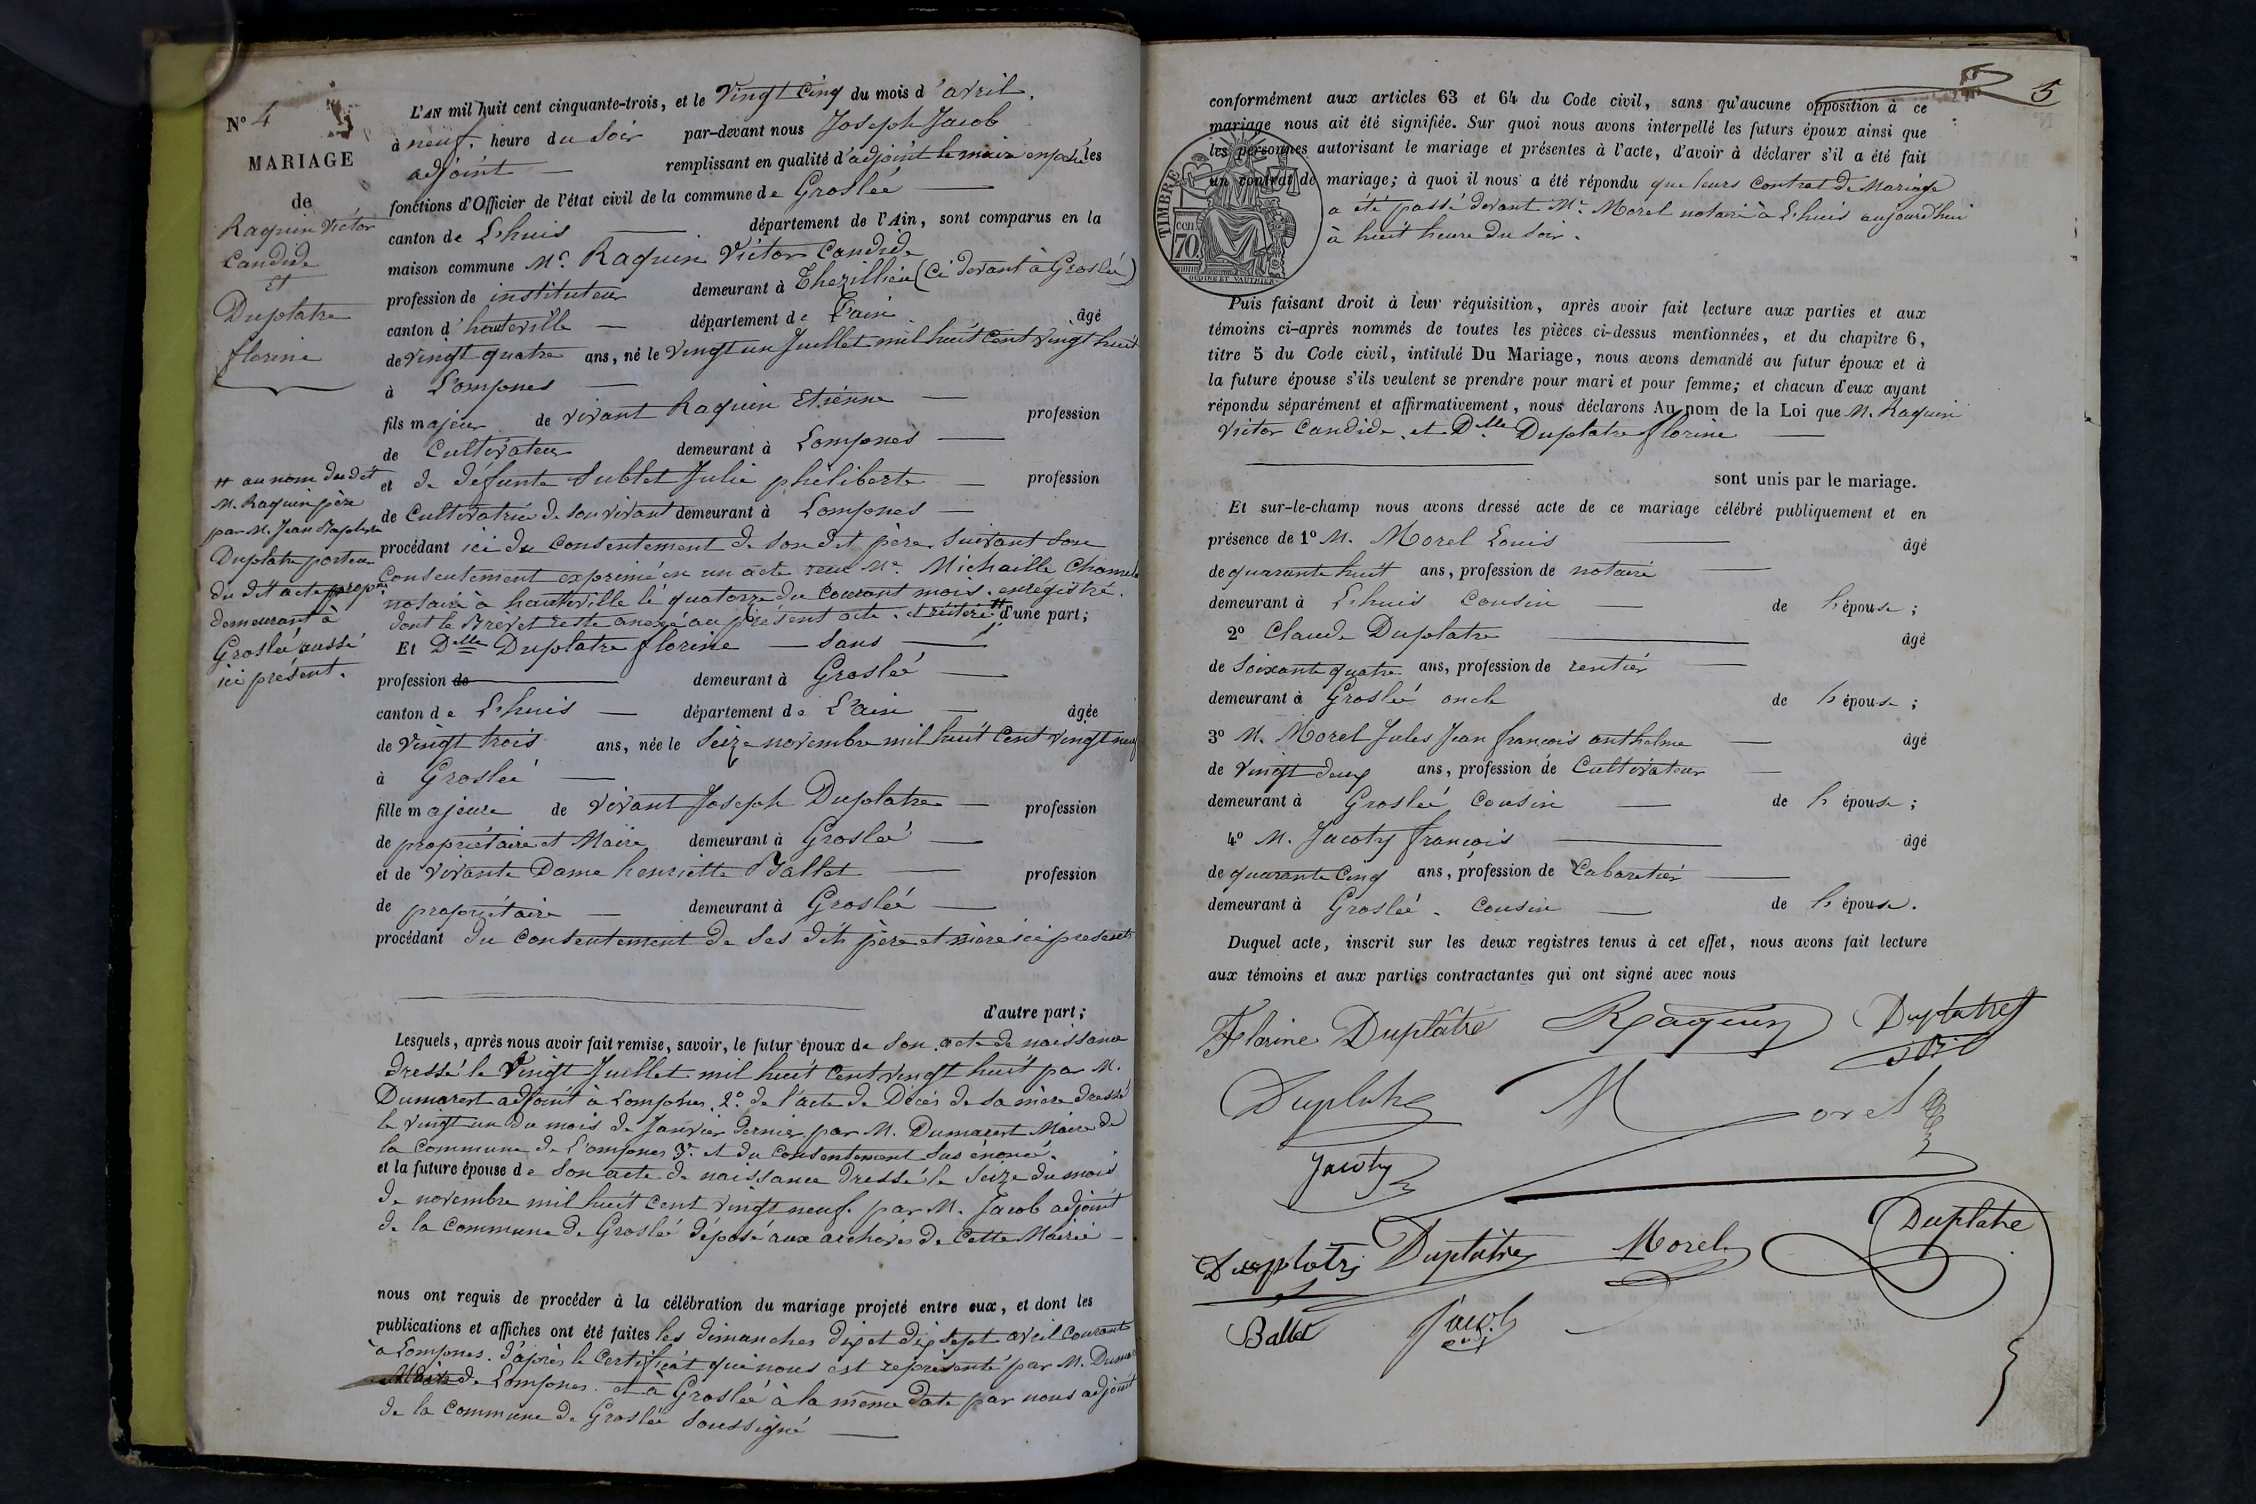 N° 4
MARIAGE
de
Raquin Victor
Candide
et
Duplatre
florine
# au nom du dit
M. Raquin père
par M. Jean Baptiste
Duplatre porteur
du dit acte
demeurant à
Groslée aussi
ici présent.
L'AN mil huit cent cinquante-trois, et le Vingt Cinq du mois d'avril,
à neuf, heure du Soir par-devant nous Joseph Jacob
adjoint — remplissant en qualité d'adjoint le maire les
fonctions d'Officier de l'état civil de la commune de Groslée —
canton de Lhuis — département de l'Ain, sont comparus en la
maison commune Mr. Raquin Victor Candide
profession de instituteur demeurant à Thezillieu (ci devant à Groslée)
canton d'hauteville — département de L'ain âgé
de vingt quatre ans, né le Vingt un Juillet mil huit Cent Vingt huit
à Lompnes —
fils majeur de vivant Raquin Etiénne — profession
de Cultivateur demeurant à Lompnes —
et de défunte Sublet Julie philiberte — profession
de Cultivatrice de son vivant demeurant à Lompnes —
procédant ici du Consentement de son dit père, suivant son
Consentement exprimé en un acte reçu Me. Michaille
notaire à hauteville le quatorze du Courant mois. enrégistré.
dont le Brevet reste anexé au présent acte. et réitéré # d'une part;
Et Delle Duplatre florine — Sans —
profession de demeurant à Groslée —
canton de Lhuis — département de L'ain — âgée
de Vingt trois ans, née le Seize novembre mil huit Cent Vingt neuf
à Groslée —
fille majeure de vivant Joseph Duplatre — profession
de propriétaire et Maire demeurant à Groslée —
et de vivante Dame henriette Ballet — profession
de propriétaire — demeurant à Groslée —
procédant du Consentement de Ses dits père et mère ici présents
d'autre part;
Lesquels, après nous avoir fait remise, savoir, le futur époux de Son acte de naissance
dressé le Vingt Juillet mil huit Cent Vingt huit par M.
Dumarest adjoint à Lompnes. 2° de l'acte de Décès de sa mère dressé
le Vingt un du mois de Janvier dernier par M. Dumarest Maire de
la Commune de Lompnes 3°. et du Consentement Sus énoncé.
et la future épouse de Son acte de naissance dressé le Seize du mois
de novembre mil huit Cent Vingt neuf. par M. Jacob adjoint
de la Commune de Groslée déposé aux archives de Cette Mairie —
nous ont requis de procéder à la célébration du mariage projeté entre eux, et dont les
publications et affiches ont été faites les dimanches dix et dix sept avril Courant
à Lompnes. d'après le Certificat qui nous est représenté par M.
Maire de Lompnes. et à Groslée à la même date par nous adjoint
de la Commune de Groslée Soussigné —
5
conformément aux articles 63 et 64 du Code civil, sans qu'aucune opposition à ce
mariage nous ait été signifiée. Sur quoi nous avons interpellé les futurs époux ainsi que
les personnes autorisant le mariage et présentes à l'acte, d'avoir à déclarer s'il a été fait
un contrat de mariage; à quoi il nous a été répondu que leurs Contrat de Mariage
a été passé devant Me. Morel notaire à Lhuis aujourd'hui
à huit heure du Soir.
TIMBRE
cen
70
Puis faisant droit à leur réquisition, après avoir fait lecture aux parties et aux
témoins ci-après nommés de toutes les pièces ci-dessus mentionnées, et du chapitre 6,
titre 5 du Code civil, intitulé Du Mariage, nous avons demandé au futur époux et à
la future épouse s'ils veulent se prendre pour mari et pour femme; et chacun d'eux ayant
répondu séparément et affirmativement, nous déclarons Au nom de la Loi que M. Raquin
Victor Candide, et Delle Duplatre florine —
sont unis par le mariage.
Et sur-le-champ nous avons dressé acte de ce mariage célébré publiquement et en
présence de 1° M. Morel Louis — âgé
de quarante huit ans, profession de notaire —
demeurant à Lhuis Cousin — de L'épouse;
2° Claude Duplatre — âgé
de Soixante quatre ans, profession de rentier —
demeurant à Groslée oncle de L'épouse;
3° M. Morel Jules Jean françois anthelme — âgé
de Vingt deux ans, profession de Cultivateur —
demeurant à Groslée, Cousin — de L'épouse;
4° M. Jacoty françois — âgé
de quarante Cinq ans, profession de Cabaretier —
demeurant à Groslée. Cousin — de L'épouse.
Duquel acte, inscrit sur les deux registres tenus à cet effet, nous avons fait lecture
aux témoins et aux parties contractantes qui ont signé avec nous
Florine Duplâtre Raquin Duplatre
Duplatre Morel
Jacoty
Duplatre Duplatre Morel Duplatre
Ballet Jacob
adj